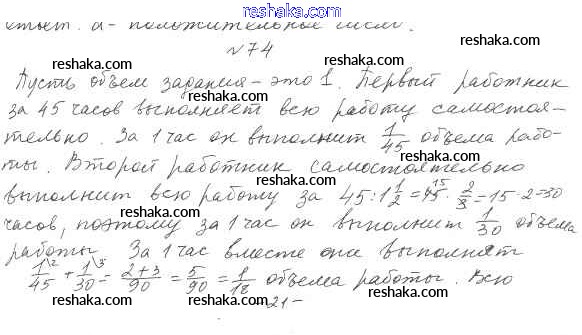 reshaka.com
ответ. a - положительные числа.
№74 reshaka.com
Пусть объем задания - это 1. Первый работник
reshaka.com reshaka.com reshaka.com
за 45 часов выполняет всю работу самостоя-
тельно. За 1 час он выполнит 1/45 объема рабо-
reshaka.com reshaka.com reshaka.com
ты. Второй работник самостоятельно
выполнит всю работу за 45:1 1/2 = 45 · 2/3 = 15·2=30
reshaka.com reshaka.com reshaka.com
часов, поэтому за 1 час он выполнит 1/30 объема
работы За 1 час вместе они выполнят
reshaka.com reshaka.com reshaka.com
1/45 + 1/30 = 2+3/90 = 5/90 = 1/18 объема работы. Всю
reshaka.com -21- reshaka.com
reshaka.com